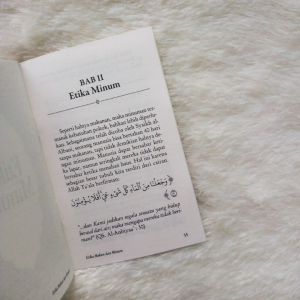 BAB II
Etika Minum
Seperti halnya makanan, minuman ter-
masuk kebutuhan pokok, bahkan lebih diperlu-
kan. Sebagaimana telah dicoba oleh Syaikh al-
Albani, seorang manusia bisa bertahan 40 hari
tanpa makanan, tapi tidak demikian halnya
tanpa minuman. Manusia dapat bertahan keti-
ka lapar, namun seringkali mereka tidak dapat
bertahan ketika merasa haus. Hal ini karena
sebagian besar tubuh kita terdiri dari cairan.
Allah Ta'ala berfirman:
وَجَعَلْنَا مِنَ الْمَاءِ كُلَّ شَيْءٍ حَيٍّ أَفَلَا يُؤْمِنُونَ
"...dan Kami jadikan segala sesuatu yang hidup
berasal dari air; maka mengapa mereka tidak ber-
iman?" (QS. Al-Anbiyaa' :
Etika Makan dan Minum